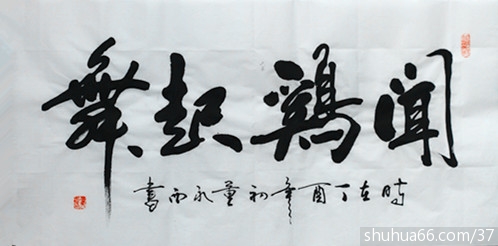 闻鷄起舞
時在丁酉年初董永雨書
shuhua66.com/37